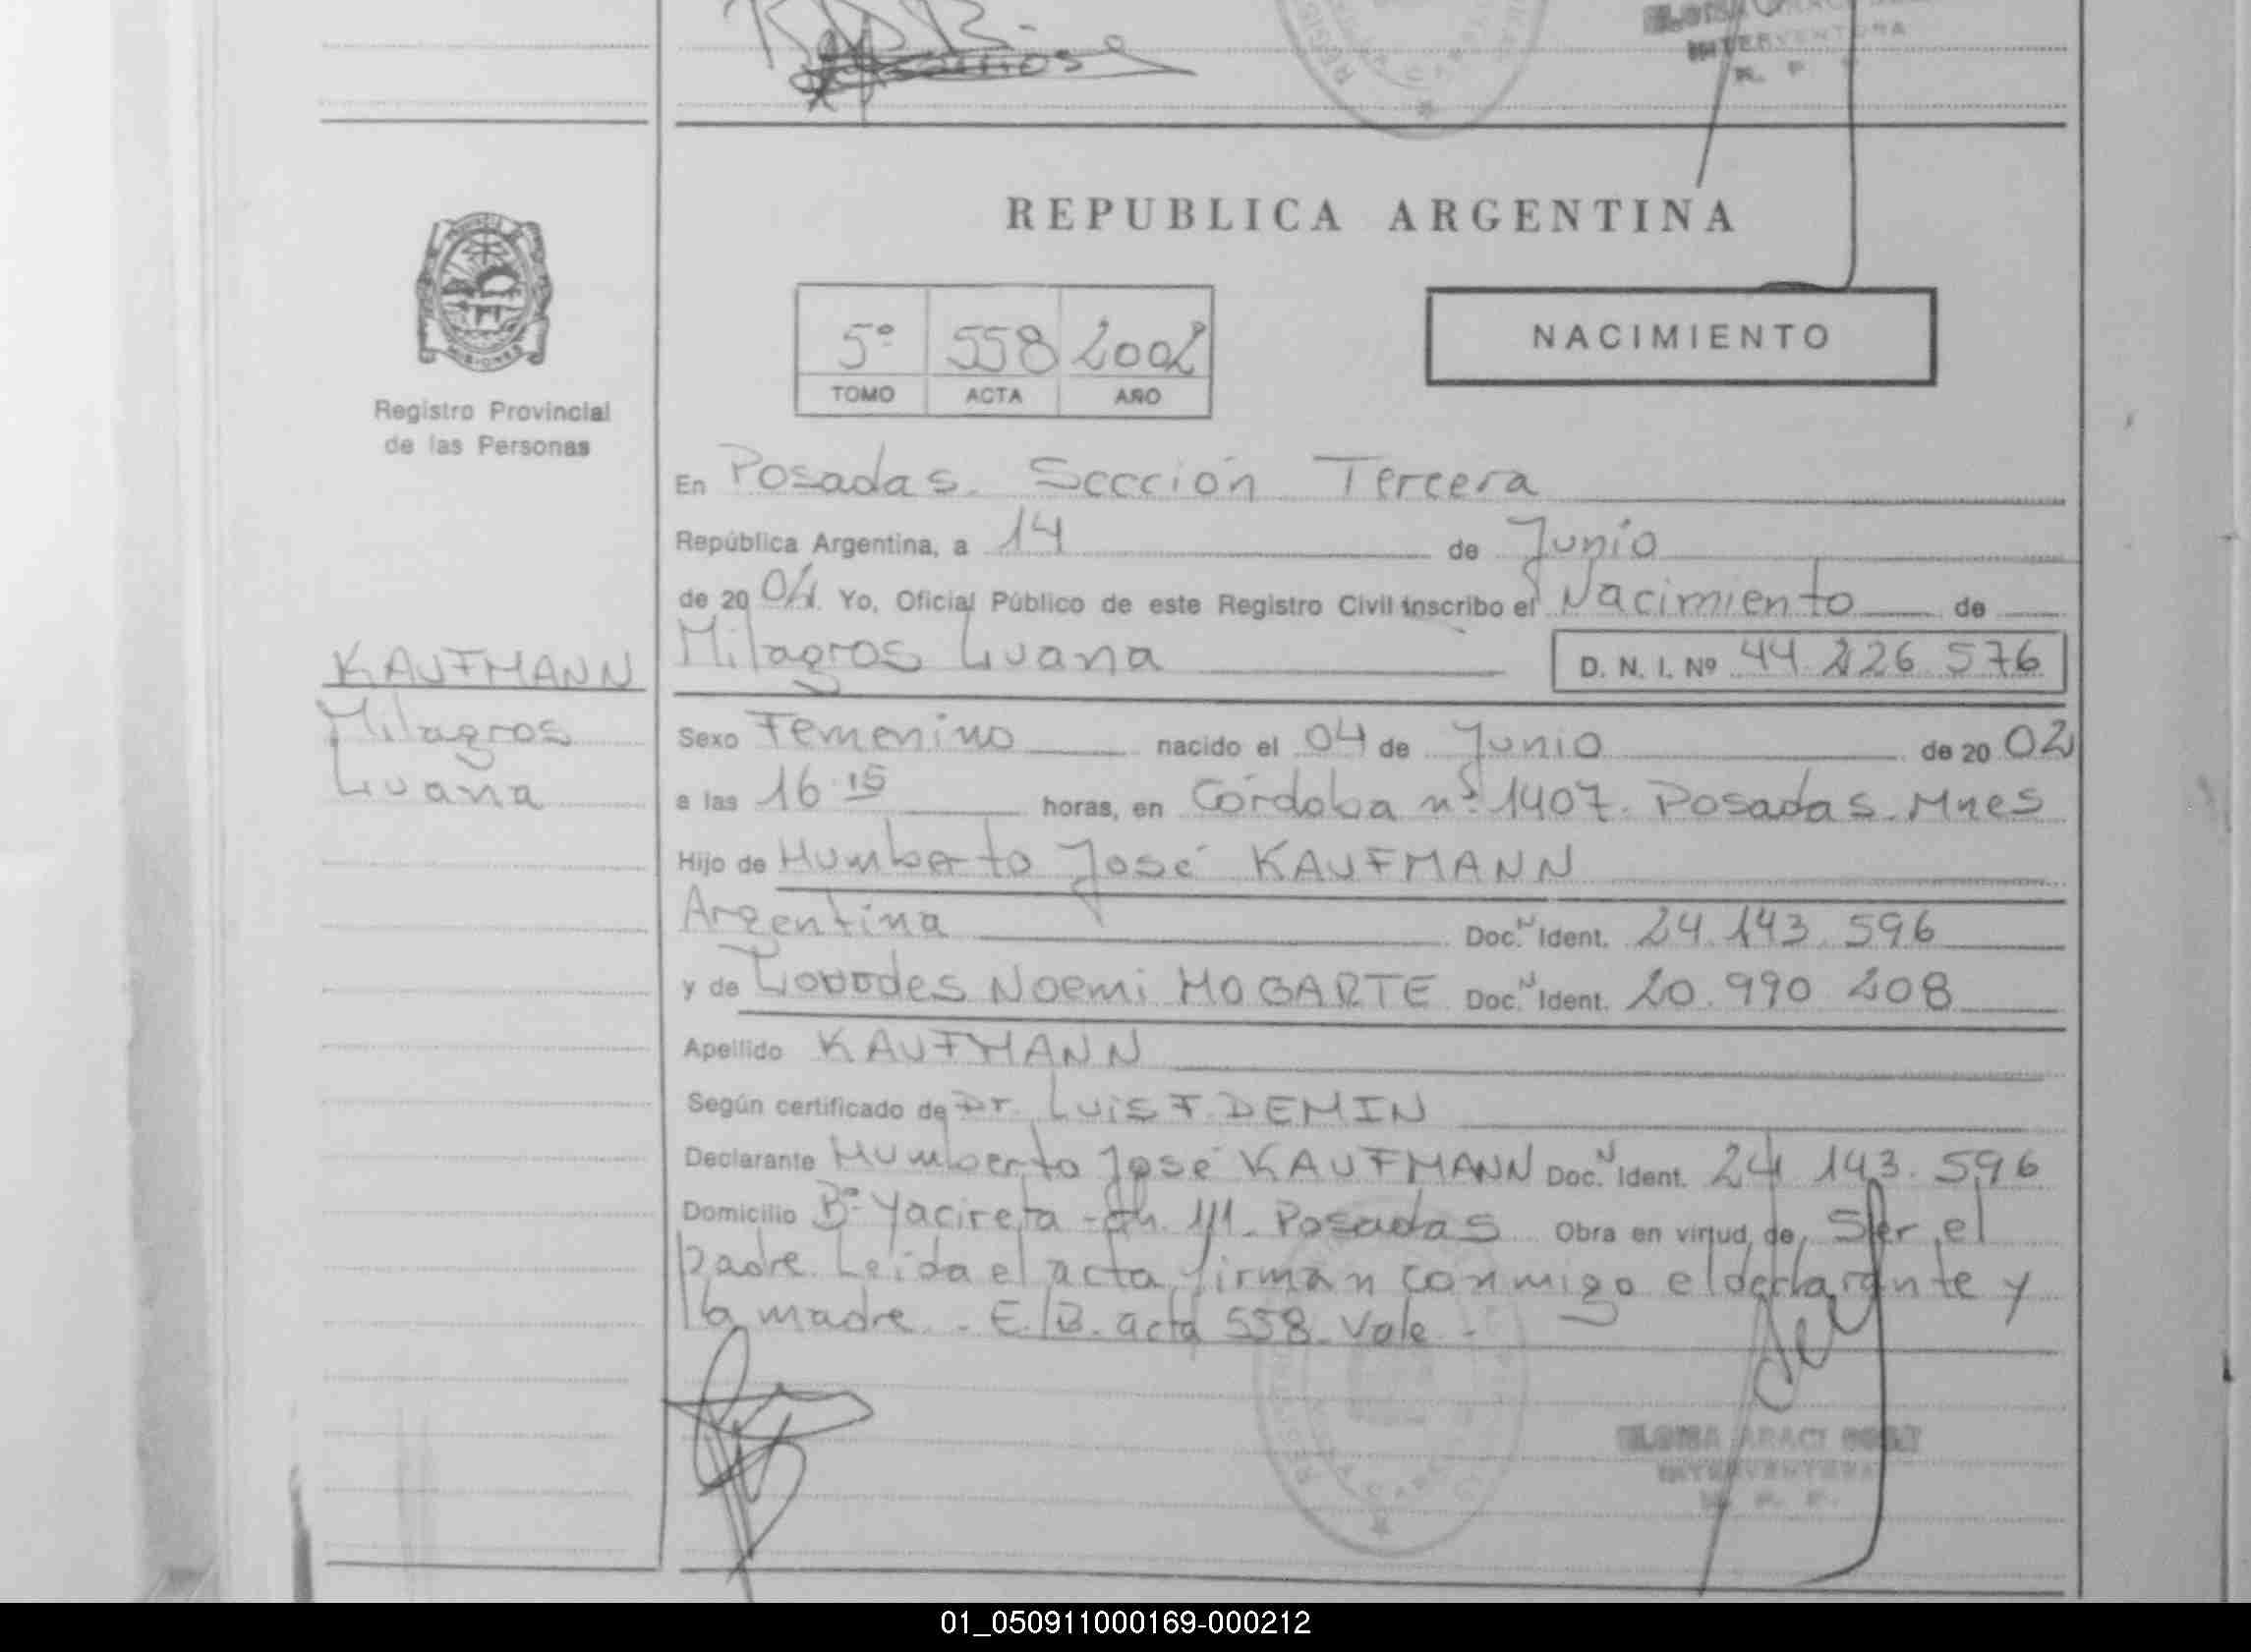 INTERVENTORA
R. P. P.
REPUBLICA ARGENTINA
MISIONES
Registro Provincial
de las Personas
5º 558 2002
TOMO ACTA AÑO
NACIMIENTO
En Posadas. Sección Tercera
República Argentina, a 14 de Junio
de 20 Yo, Oficial Público de este Registro Civil inscribo el Nacimiento de
KAUFMANN
Milagros
Luana
Milagros Luana D. N. I. Nº 44.226.576
Sexo Femenino nacido el 04 de Junio de 20 02
a las 16 15 horas, en Córdoba nº 1407. Posadas. Mnes
Hijo de Humberto José KAUFMANN
Argentina Doc. N Ident. 24.143.596
y de Lourdes Noemi HOGARTE Doc. N Ident. 20.990.208
Apellido KAUFMANN
Según certificado de Dr. LUIS F. DEMIN
Declarante Humberto José KAUFMANN Doc. N Ident. 24.143.596
Domicilio Bº Yacireta - Ch. 111. Posadas Obra en virtud de Ser el
padre. Leida el acta firman conmigo el declarante y
la madre. - E/B. acta 558. Vale -
INTERVENTORA
R. P. P.
01_050911000169-000212